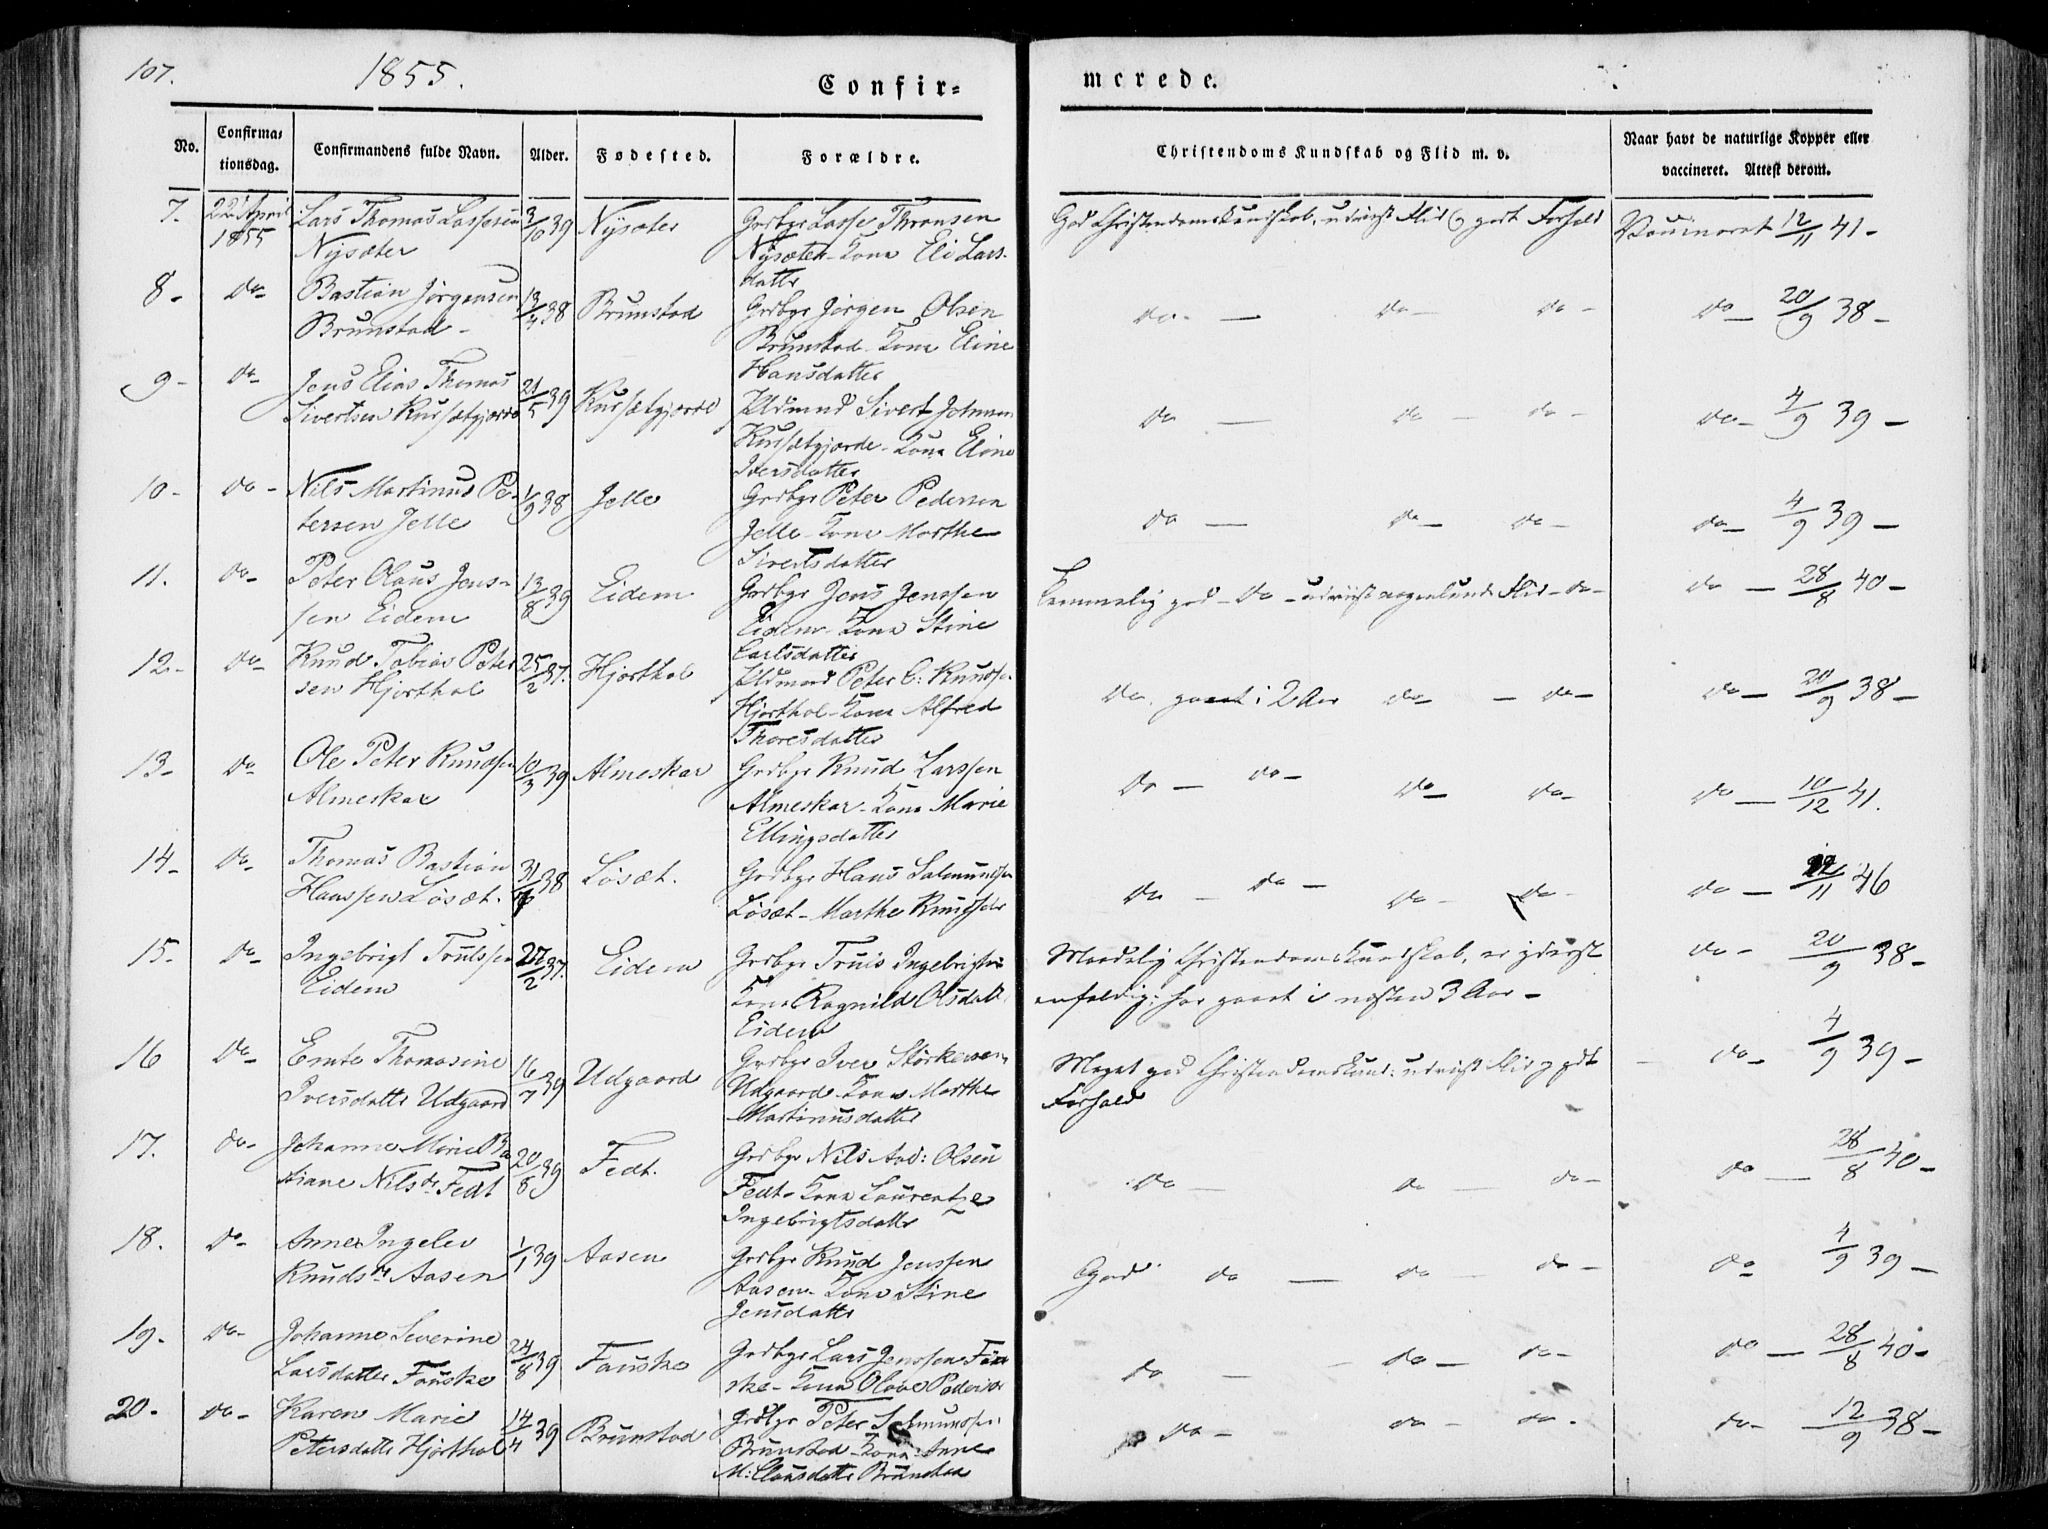 107.
1855.
Confir=
merede.
No.
Confirma=
tionsdag.
Confirmandens fulde Navn.
Alder.
Fødested.
Forældre.
Christendoms Kundskab og Flid m. v.
Naar havt de naturlige Kopper eller
vaccineret. Attest derom.
7- 22 April Lars Thomas Lassesen 3/10 39 Nysæter Grdbgr Lasse Thronsen God Christendomskundskab, udviist Flid og godt Forhold Vaccineret 12/11 41-
1855 Nysæter Nysæter- Kone Eli Lars-
datter
8- do- Bastian Jørgensen 13/4 38 Brunstad Grdbgr Jørgen Olsen do- — do- do- do- 20/9 38-
Brunstad- Brunstad- Kone Eline
Hansdatter
9- do- Jens Elias Thomas 21/5 39 Kursetgjerde Sivert Johnsen do — do- do- do- 4/9 39-
Sivertsen Kursetgjerde Kursetgjerde- Kone Eline
Iversdatter
10- do- Nils Martinus Pe- 1/9 38 Jelle Grdbgr Peter Pedersen do — do- do- do- 4/9 39-
tersen Jelle Jelle- Kone Marthe
Sivertsdatter
11. do- Peter Olaus Jens- 13/8 39 Eidem Grdbgr Jens Jenssen Temmelig god- do- udviist nogenlunde Flid- do- do- 28/8 40-
sen Eidem Eidem- Kone Stine
Carlsdatter
12- do- Knud Tobias Peter 25/2 37. Hjorthol Peter E: Knudsen do. gaaet i 2 Aar do- - do- do- 20/9 38-
sen Hjorthol Hjorthol- Kone Alfred
Thoresdatter
13- do Ole Peter Knudsen 10/3 39 Almeskar Grdbgr Knud Larssen do- do- do- do- do- 10/12 41.
Almeskar Almeskar- Kone Marie
Ellingsdatter
14- do- Thomas Bastian 31/ 38 Løsæt. Grdbgr Hans Salmundsen do- do- do- do- do- /11 46
Hanssen Løsæt. Løsæt- Marthe
15- do- Ingebrigt Trulssen /2 37. Eidem Grdbgr Truls Ingebrigtsen Maadelig Christendomskundskab, er yderst do- 20/9 38-
Eidem Kone Ragnild Olsdatter enfoldig; har gaaet i næsten 3 Aar-
Eidem
16 do- Thomasine 16/7 39 Udgaard Grdbgr Iver Størkersen Meget god Christendomskund: udviist Flid og godt do- 4/9 39-
Iversdatter Udgaard Udgaard- Kone Marthe Forhold
Martinusdatter
17. do- Johanne Marie Ba 20/8 39 Fedt. Grdbgr Nils And: Olsen do- — do- do- do- 28/8 40-
stiane Nilsdr Fedt Fedt- Kone Laurentze
Ingebrigtsdatter
18. do- Anne Ingelev 1/1 39 Aasen Grdbgr Knud Jenssen God do- do- do- do- 4/9 39-
Knudsdr Aasen Aasen- Kone Stine
Jensdatter
19. do- Johanne Severine 24/8 39 Fauske Grdbgr Lars Jenssen Fau do — do- do- do- 28/8 40-
Larsdatter Fauske ske- Kone Olave
20- do- Karen Marie 14/4 39 Brunstad Grdbgr Peter Salmunssen do- do- do- do- 12/9 38-
Petersdatter Hjorthol Brunstad- Kone Anne
M: Clausdatter Brunstad